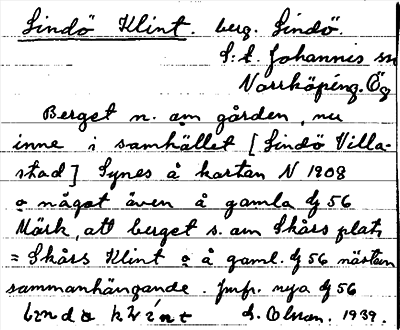 Lindö Klint. berg. Lindö.
S:t Johannis sn
Norrköping. Ög
Berget n. om gården, nu
inne i samhället [Lindö Villa-
stad] Synes å kartan N 1908
o något även å gamla dg 56
Märk, att berget s. om Skårs plats
= Skårs Klint o å gaml. dg 56 nästan
sammanhängande. Jmf. nya dg 56
G. Olsson. 1939.